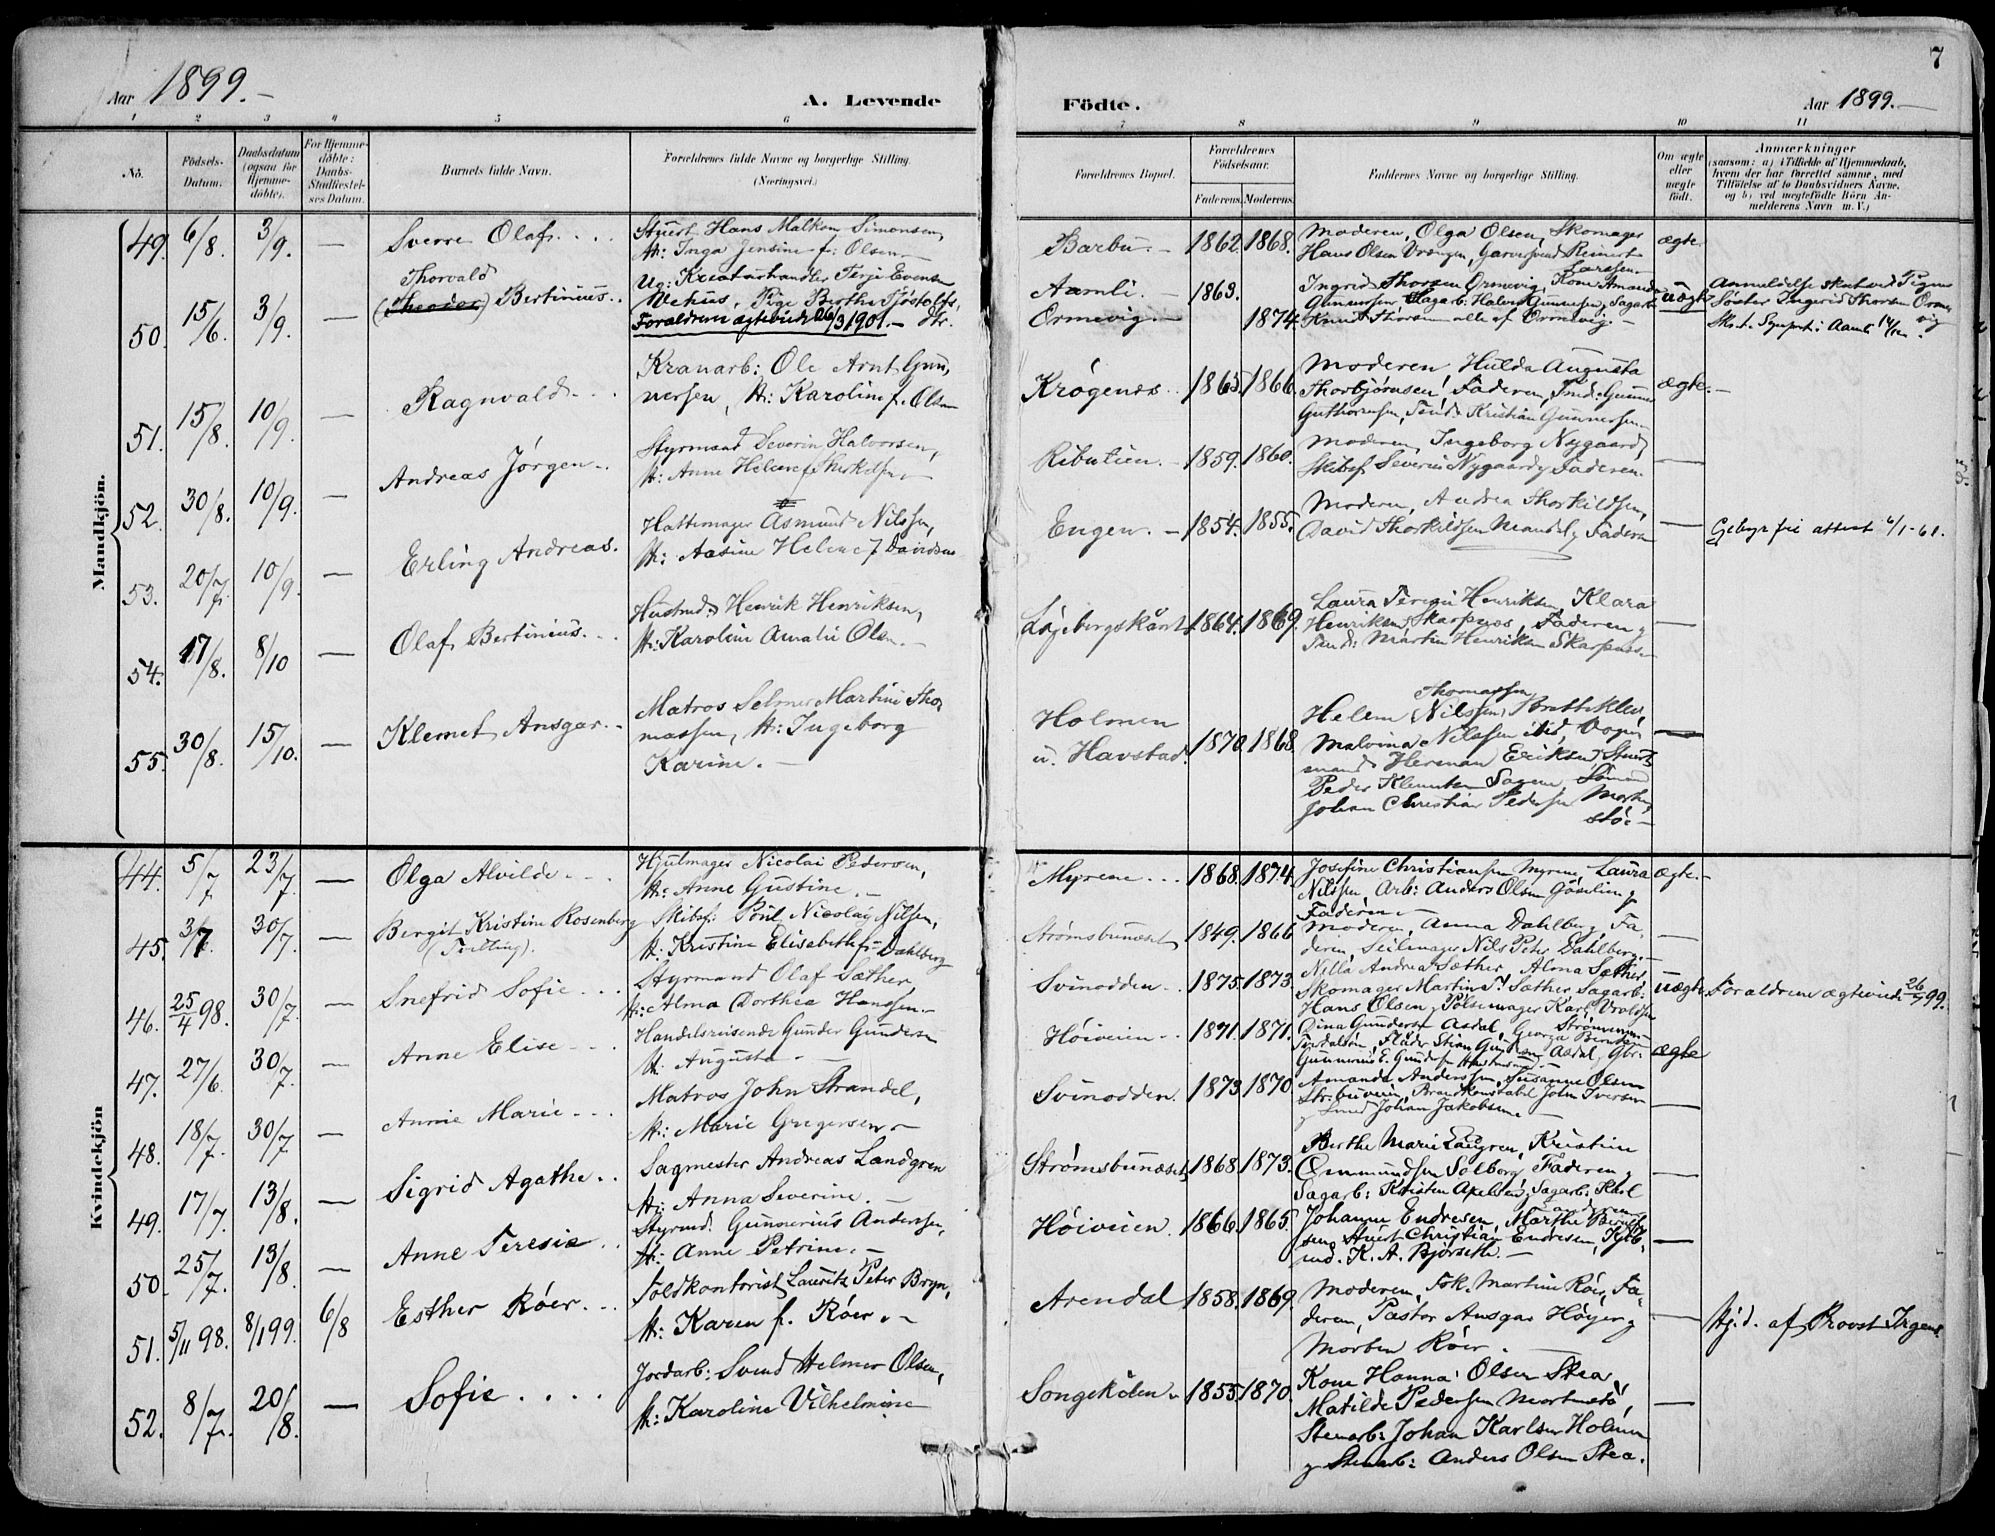 Aar 1899.-
A. Levende
Födte.
Aar 1899.-
7
1 2 3 4 5 6 7 8 9 10 11
No.
Födsels-Datum.
Daabsdatum (ogsaa for Hjemme-döbte).
For Hjemme-döbte: Daabs-Stadfæstel-ses Datum.
Barnets fulde Navn.
Forældrenes fulde Navne og borgerlige Stilling.
(Næringsvei.)
Forældrenes Bopæl.
Forældrenes Födselsaar.
Faderens. Moderens.
Faddernes Navne og borgerlige Stilling.
Om ægte eller uægte födt.
Anmærkninger
(saasom: a) i Tilfælde af Hjemmedaab, hvem der har forrettet samme, med Tilföielse af to Daabsvidners Navne, og b) ved uægtefödte Börn An-melderens Navn m. V.)
Mandkjön.
49. 6/8. 3/9. — Sverre Olaf. Stuert Hans Malkom Simonsen,
H: Inga Jensine f. Olsen
Barbu. 1862. 1868. Moderen, Olga Olsen, Skomager
Hans Olsen Garversvend Reinert
Larssen
ægte
50. 15/6. 3/9. — Thorvald
(Theodor) Bertinius. Ug: Kreaturhandler Terje Evensen
Vehus, Pige Berthe
Forældrene ægteviede 26/3 1901.
Aamli.
Ormevig. 1863. 1874. Ingrid Thorsen Ormevig, Kone Amanda
Gunnersen Sagarb: Halvor Gunnersen, Sagarb:
Knut Thorsen alle af Ormevig.
uægte Anmeldelse sket ved Pigens
Søster Ingrid Thorsen Orme
vig
51. 15/8. 10/9. — Ragnvald. Kranarb: Ole Arnt Gun,
nersen, H: Karoline f. Olsen
Krøgenes 1865. 1866. Moderen, Hulda Augusta
Thorbjørnsen, Faderen, Smed: Gunner
Guthormsen, Smed: Kristian Gunnersen
ægte.
52. 30/8. 10/9. — Andreas Jørgen. Styrmand Severin Halvorsen,
H: Anne Helene f.
Ributien. 1859. 1860. Moderen, Ingeborg Nygaard,
Skibsf. Severin Nygaard, Faderen. —
53. 20/7. 10/9. — Erling Andreas. Hattemager Asmund Nilssen,
H: Aasine Helene f Davidsen
Engen. 1854. 1855. Moderen, Andrea Thorkildsen,
David Thorkildsen Mandal, Faderen — Gebyrfri attest 6/1-61.
54. 17/8. 8/10 — Olaf Bertinius. Hustmd: Henrik Henriksen,
H: Karoline Amalie Olsen.
1864. 1869. Laura Henriksen, Klara
Henriksen, Skarpnes, Faderen,
Smed: Martin Henriksen Skarpnes —
55. 30/8. 15/10. — Klemet Ansgar. Matros Selmer Martin Tho
massen, H: Ingeborg
Karine.
Holmen
u. Havstad. 1870. 1868. Thomassen
Helene Nilssen,
Malvina Nilssen ibid, Vogn
mand Herman Eriksen, Stuert
Peder Klemetsen Sømand
Johan Christian Pedersen Mortens,
stø. —
Kvindekjön
44. 5/7 23/7 — Olga Alvilde. Hjulmager Nicolai Pedersen,
H: Anne Gustine.
Myrene 1868. 1874. Josefine Christiansen Myrene, Laura
Nilssen, Arb: Anders Olsen
Faderen
ægte.
45. 3/7. 30/7. — Bergit Kristine Rosenberg
(Tvilling). Skibsf: Poul Nicolay Nilsen,
H. Kristine Elisabeth f. Dahlberg
Strømsbunæset 1849. 1866 Moderen, Anna Dahlberg, Fa-
deren, Seilmager Nils Peter Dahlberg. —
46. 25/4 98. 30/7. — Snefrid Sofie. Styrmand Olaf Sæther
H: Alma Dorthea Hanssen
Svinodden. 1875. 1873. Nilla Andrea Sæther, Alma Sæther,
Skomager Martin Sæther, Sagarb:
Hans Olsen, Pølsemager Karl Vraldsen
uægte Forældrene ægteviede 26/7 99.
47. 27/6. 30/7. — Anne Elise Handelsreisende Gunder Gundersen
H: Augusta.
Høiveien 1871. 1871. Dina Gundersen Asdal, Georga Berntsen
Strømmen
ægte
48. 18/7. 30/7. — Annie Marie Matros John Strandel,
H: Marie Gregersen
Svinodden. 1873. 1870. Amanda Anderssen, Susanne Olsen
Strøbuveien, Brandkonstabel John Iversen
Smed Johan Jakobsen —
49. 17/7. 13/8. — Sigrid Agathe. Sagmester Andreas Landgren
H: Anna Severine.
Strømsbunæset, 1868. 1873. Berthe Marie Laugren, Kristine
Ommundsen Solborg, Faderen,
Sagarb: Kristen Axelsen, Sagarb: Karl —
50. 25/7. 13/8. — Anne Teresie. Styrmd. Gunnerius Andersen,
H: Anne Petrine.
Høiveien. 1866. 1865. Johanne Endresen, Marthe
Stuert Christian Endresen, Kjøb,
md. K. A. Bjørseth. —
51. 5/11 98. 8/1 99. 6/8 Esther Røer. Toldkontorist Lauritz Peter Bryn,
H: Karen f. Røer.
Arendal 1858. 1869. Moderen, Frk. Martine Røer, Fa-
deren, Pastor Ansgar Høyer,
Morten Røer. — Hj.d. af Provst Irgens
52. 8/7. 20/8. — Sofie. Jordarb: Svend Helmer Olsen,
H: Karoline Vilhelmine
Songekilen 1855. 1870. Kone Hanna Olsen Stea,
Matilde Pedersen Mortenstø,
Stenarb: Johan Karlsen Holmen
Stenarb: Anders Olsen Stea. —